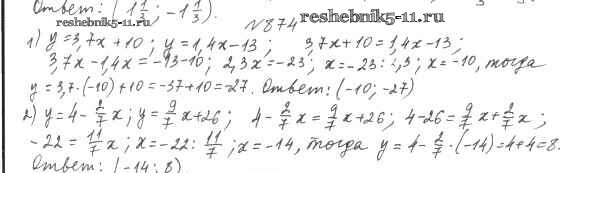 Ответ: (1 1/3; -1 1/3).
reshebnik5-11.ru
№874 reshebnik5-11.ru
1) y = 3,7x + 10; y = 1,4x - 13; 3,7x + 10 = 1,4x - 13;
3,7x - 1,4x = -13 - 10; 2,3x = -23; x = -23 : 2,3; x = -10, тогда
y = 3,7·(-10) + 10 = -37 + 10 = -27. Ответ: (-10; -27)
2) y = 4 - 2/7 x; y = 9/7 x + 26; 4 - 2/7 x = 9/7 x + 26; 4 - 26 = 9/7 x + 2/7 x;
-22 = 11/7 x; x = -22 : 11/7; x = -14, тогда y = 4 - 2/7·(-14) = 4 + 4 = 8.
Ответ: (-14; 8)